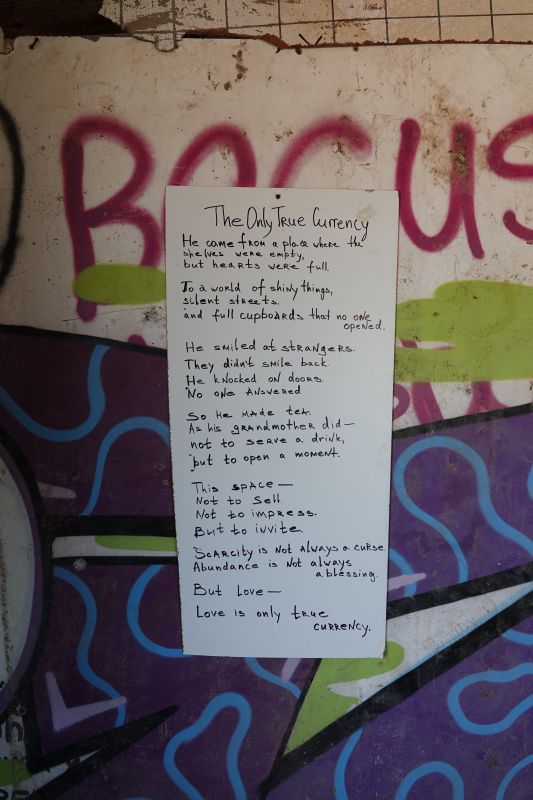 The Only True Currency
He came from a place where the
shelves were empty,
but hearts were full.
To a world of shiny things,
silent streets.
and full cupboards that no one
opened.
He smiled at strangers.
They didn't smile back.
He knocked on doors.
No one answered
So he made tea.
As his grandmother did—
not to serve a drink,
but to open a moment.
This space—
Not to sell.
Not to impress.
But to invite.
Scarcity is not always a curse.
Abundance is not always
a blessing.
But Love—
Love is only true
currency.